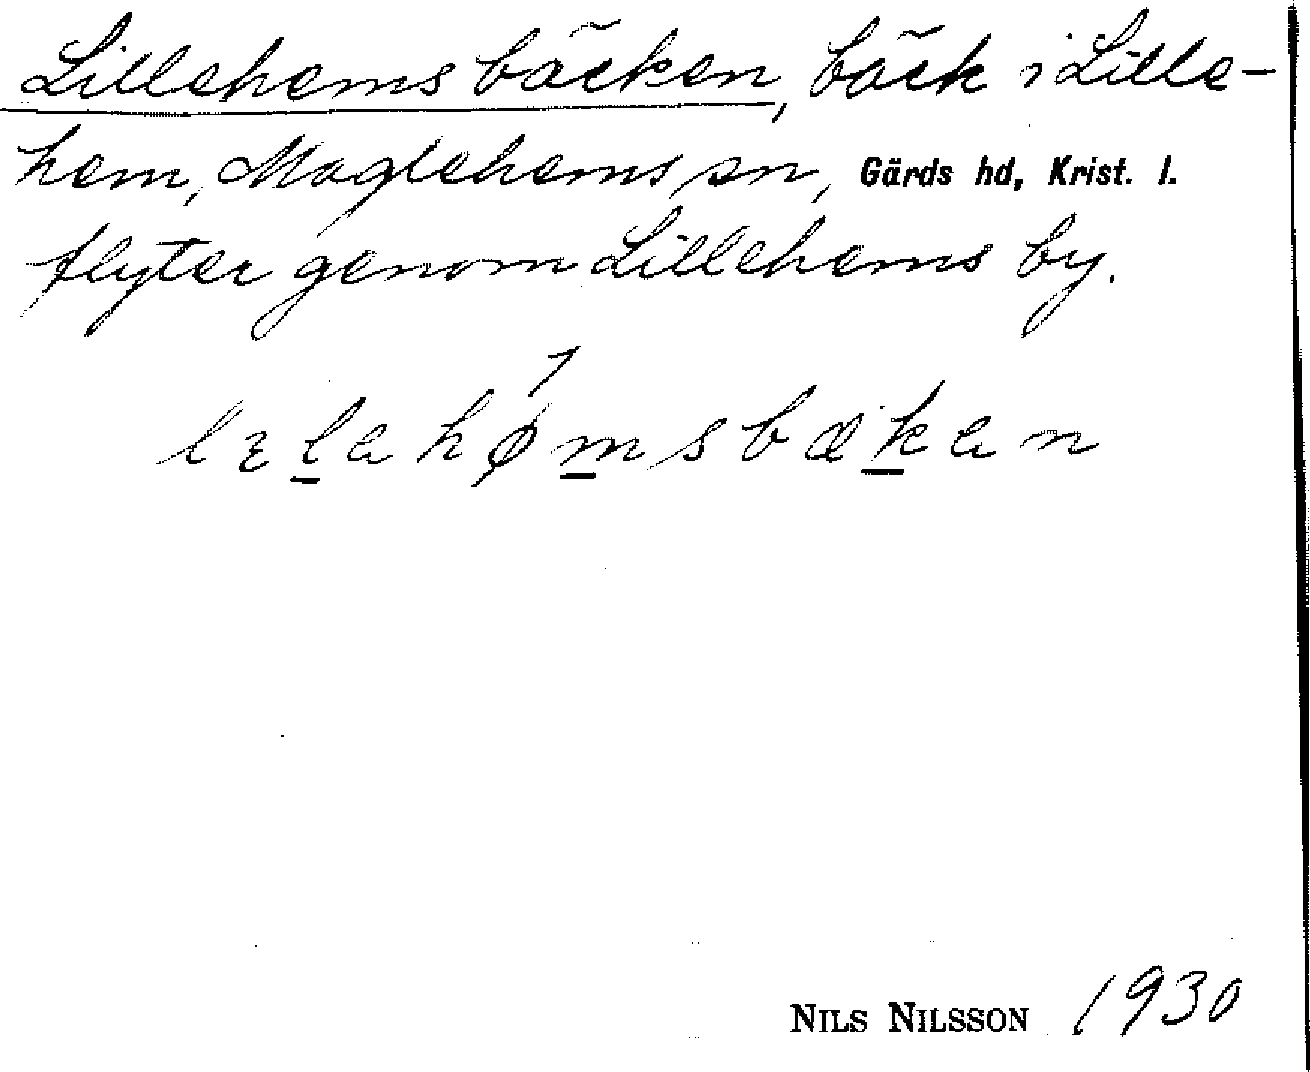 Lillehemsbäcken, bäck i Lille-
hem, Maglehems sn, Gärds hd, Krist. l.
flyter genom Lillehems by.
lɛlahømsbækan
NILS NILSSON 1930